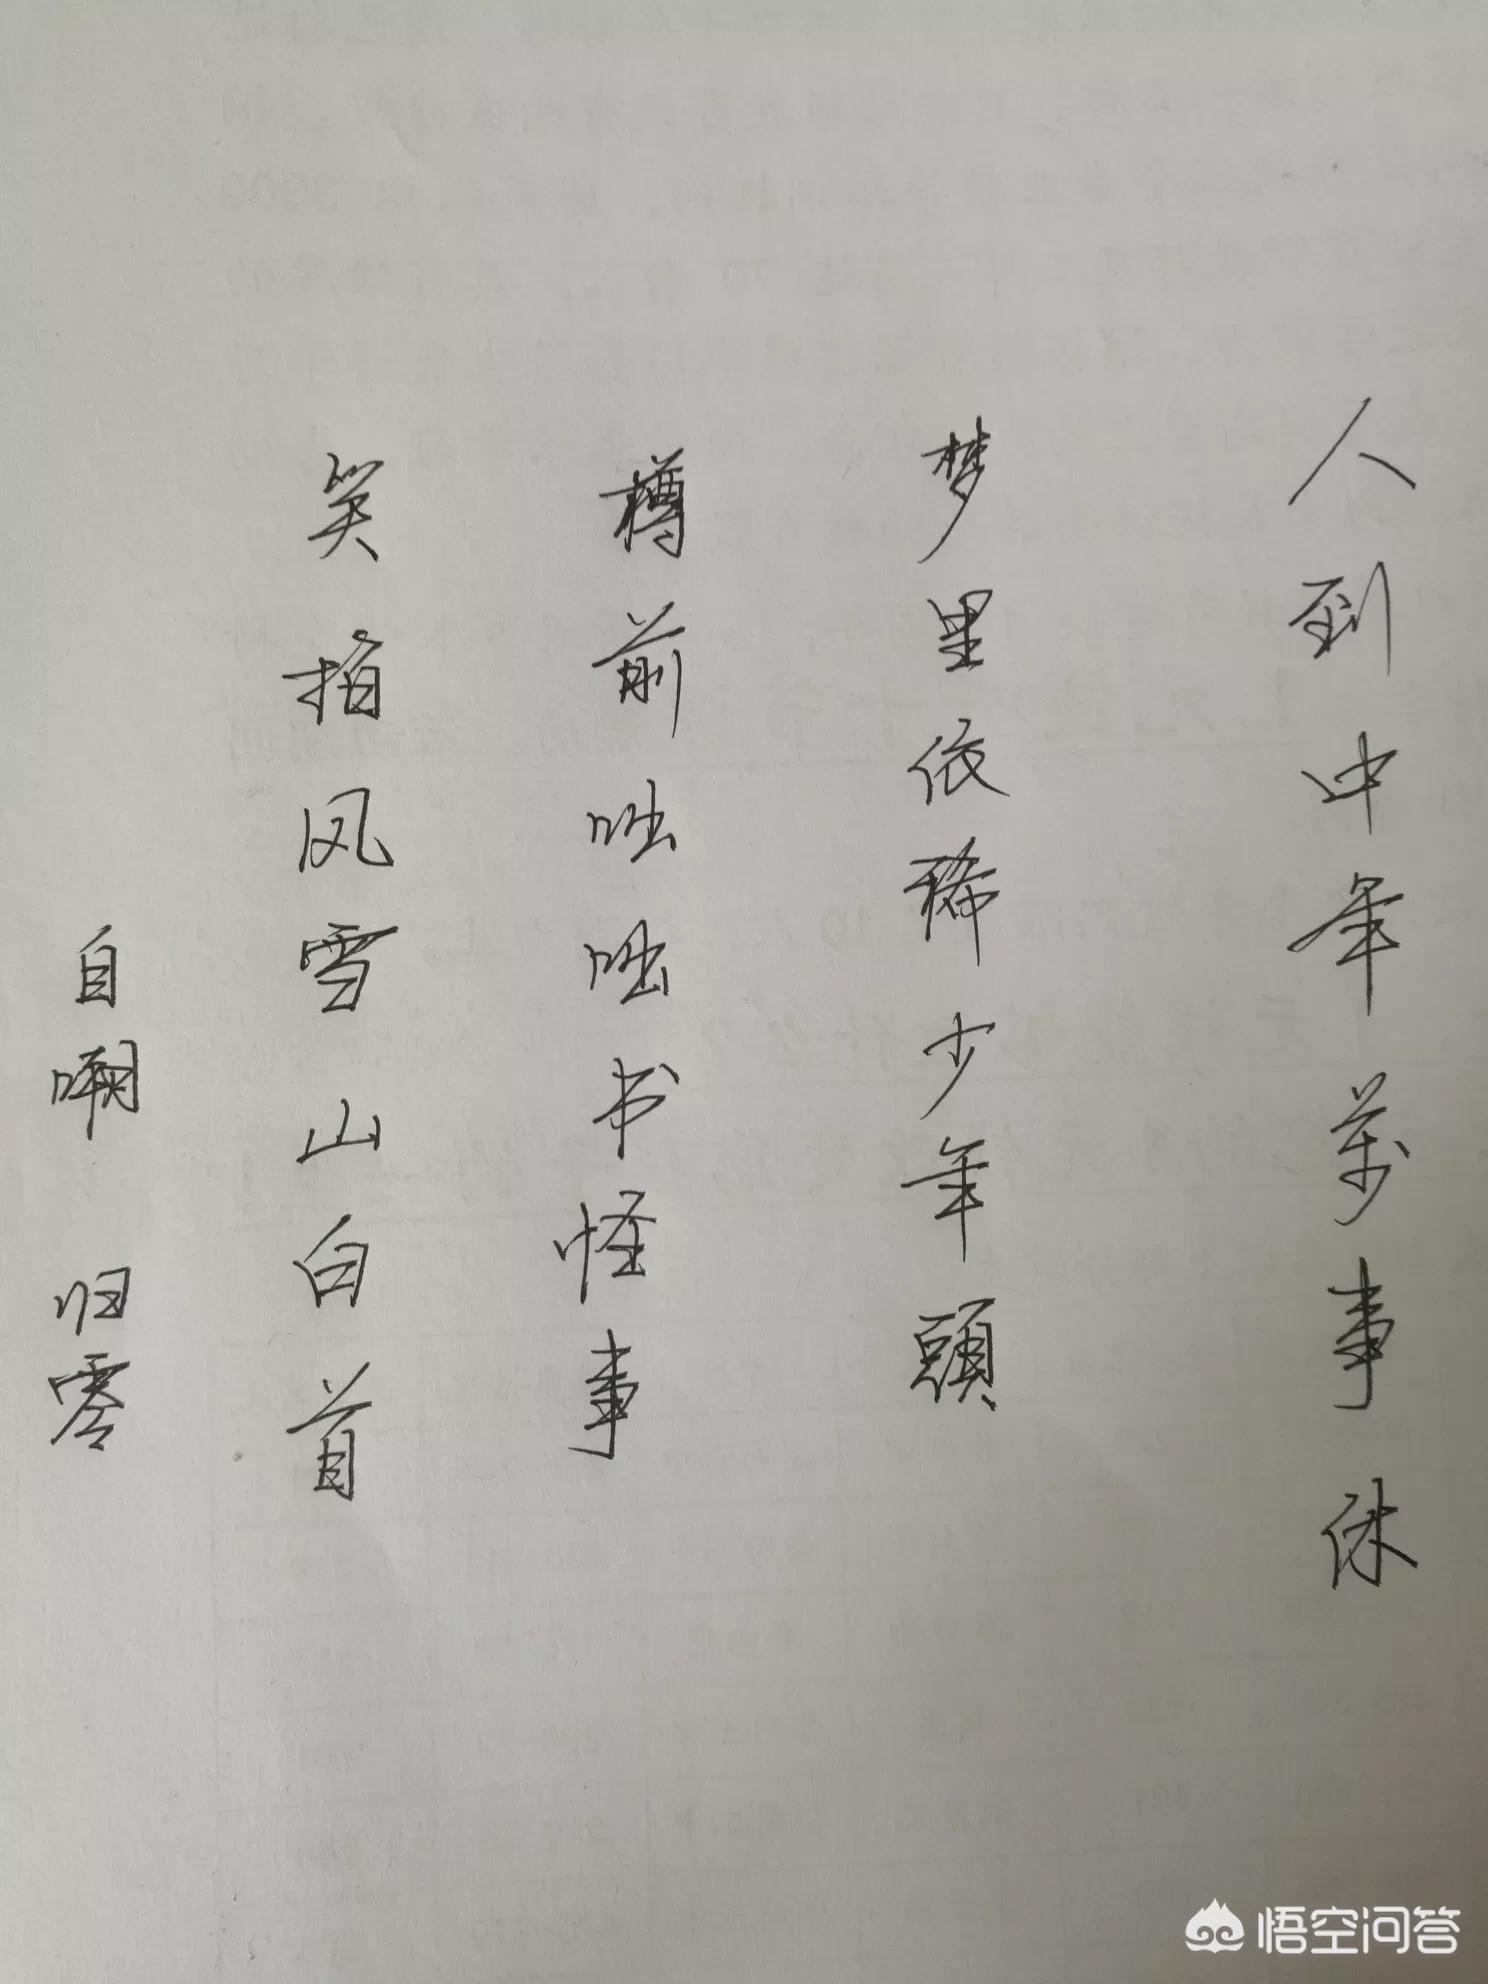 人到中年萬事休
梦里依稀少年頭
樽前咄咄书怪事
笑拍风雪山白首
自嘲 归零
悟空问答